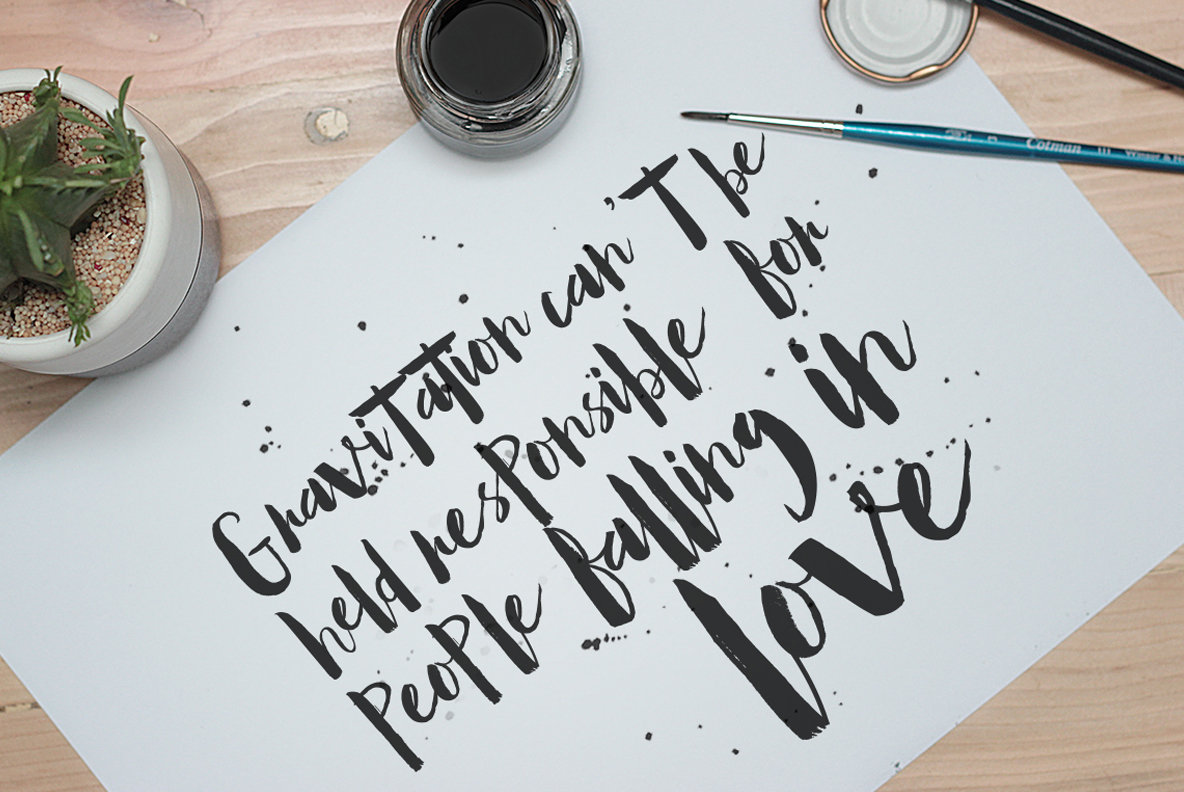 GraviTaTion can'T be
held resPonsible for
PeoPle falling in
love
Cotman 111 Winsor & N